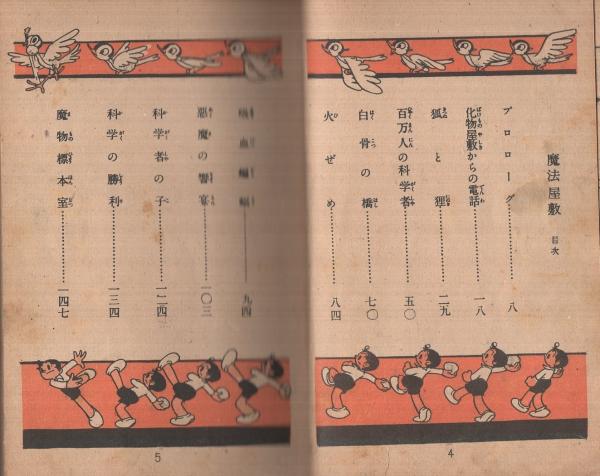 魔法屋敷 目次
プロローグ…………八
化物屋敷からの電話…………一八
狐と狸…………二九
百万人の科学者…………五〇
白骨の橋…………七〇
火ぜめ…………八四
4
吸血蝙蝠…………九四
悪魔の饗宴…………一〇三
科学者の子…………一二四
科学の勝利…………一三四
魔物標本室…………一四七
5